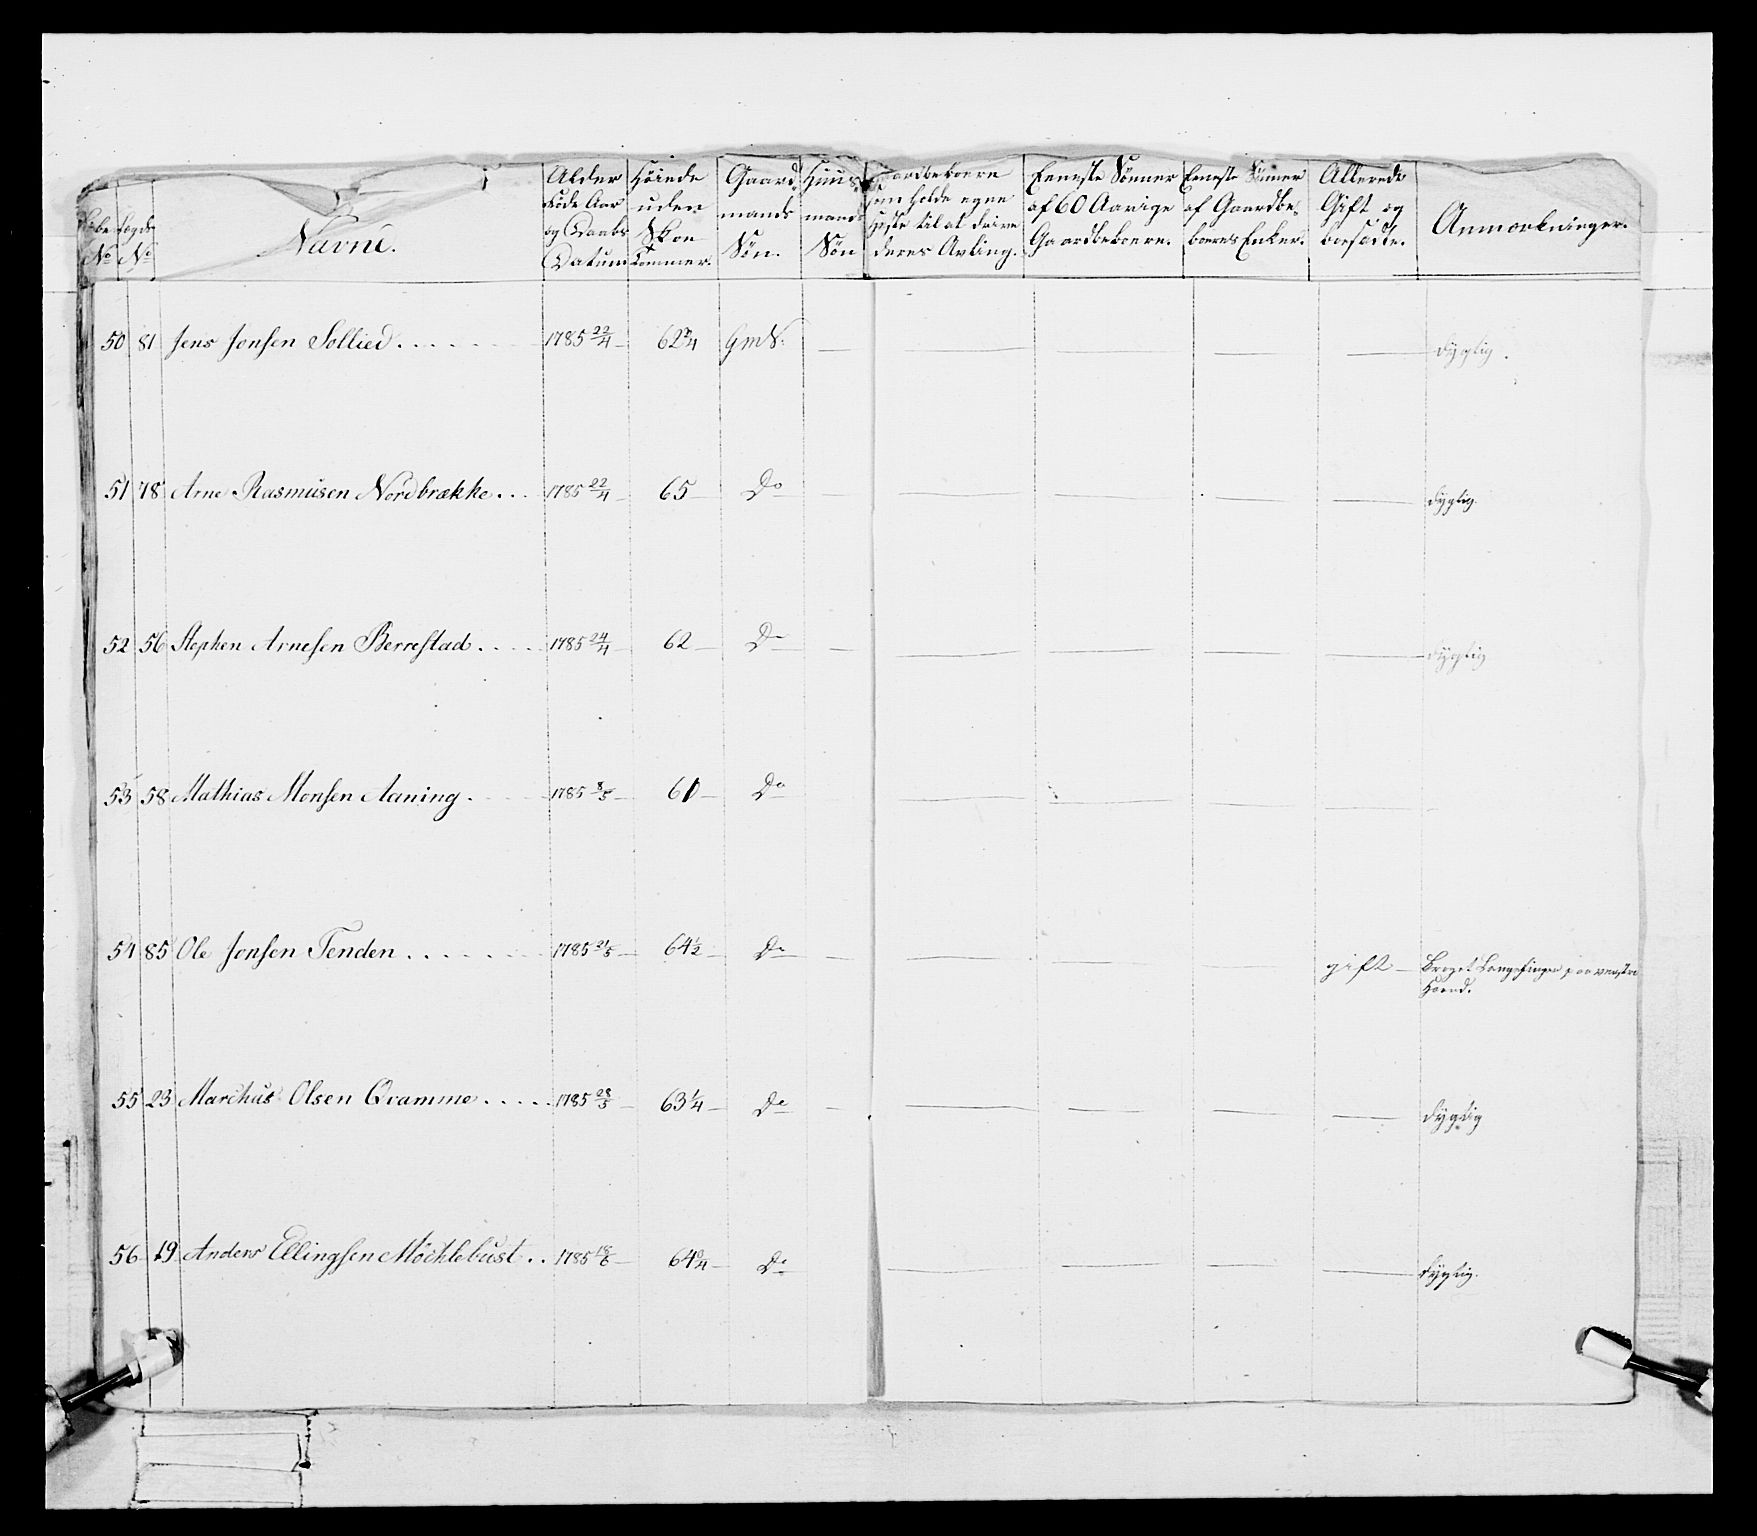 Løbe No
Lægds No
Navne.
Alder Føde Aar og Daabs Datum
Höiede uden Skoe Tommer.
Gaard mands Sön.
Huus mands Sön
Gaardbeboere som holde egne Heste til at drive deres Avling.
Eeneste Sönner af 60 Aarige Gaardbeboere.
Eeneste Sönner af Gaardbeboeres Enker.
Allerede Gift og boesadte.
Anmærkninger.
50 81 Jens Jonsen Sollied 1785 22/4 62 3/4 GmS. — — — — — dygtig.
51 78 Arne Rasmusen Nordbrække 1785 22/4 65 Do — — — — dygtig.
52 56 Stephen Arnesen Berrestad 1785 24/4 62 Do — — — — — dygtig
53 58 Mathias Monsen Aaning 1785 8/5 61 Do — — — — —
54 85 Ole Jonsen Tenden 1785 21/5 64 1/2 Do — — — — gift Langefinger paa venstre
Haand.
55 23 Marchus Olsen Qvamme 1785 28/5 63 1/4 Do — — — — — dygtig
56 19 Anders Ellingsen Möchlebust 1785 18/6 64 3/4 Do — — — — dygtig.